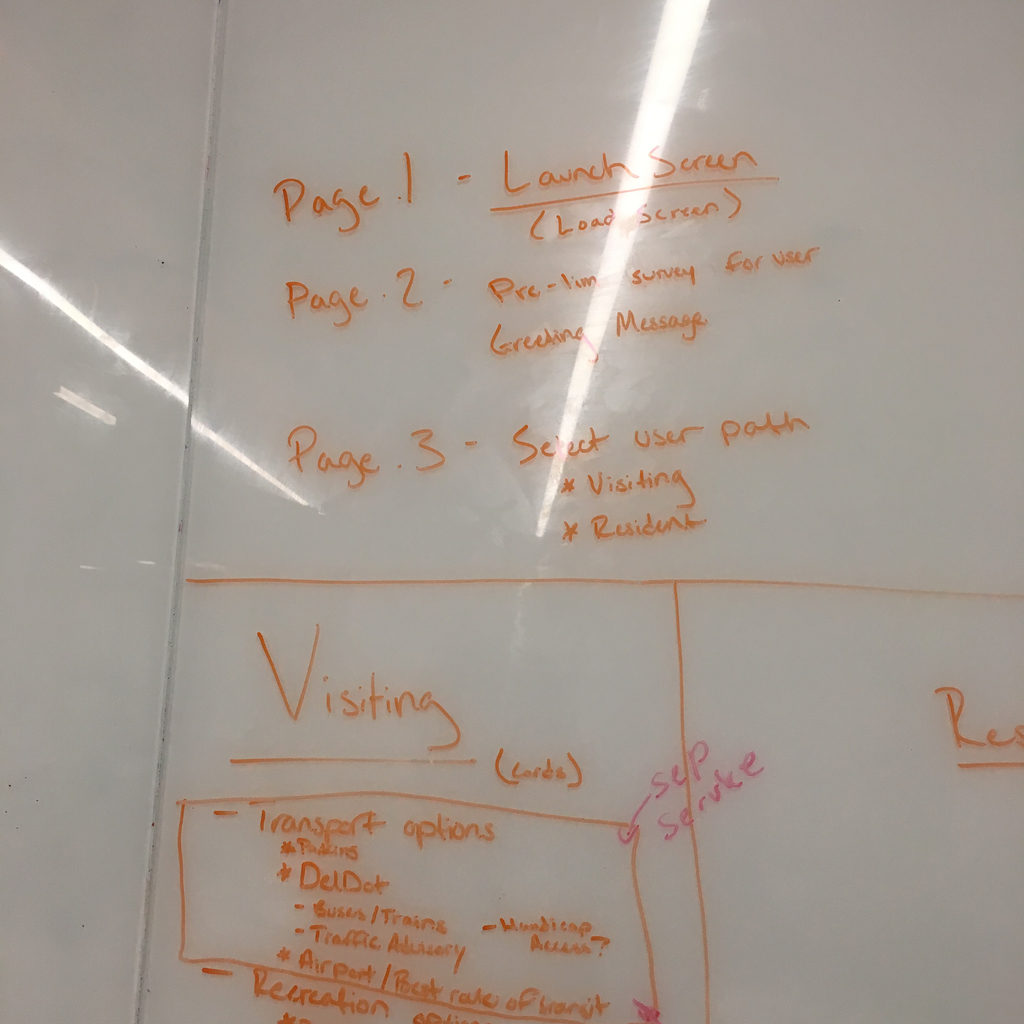 Page.1 - Launch Screen
(Load Screen)
Page.2 - Pre-lim survey for user
Greeting Message
Page.3 - Select user path
* Visiting
* Resident
Visiting
(cards)
sep
service
- Transport options
* Parking
* DelDot
- Buses/Trains
- Traffic Advisory
- Handicap
Access?
* Airport/Best rate of transit
- Recreation options
Res